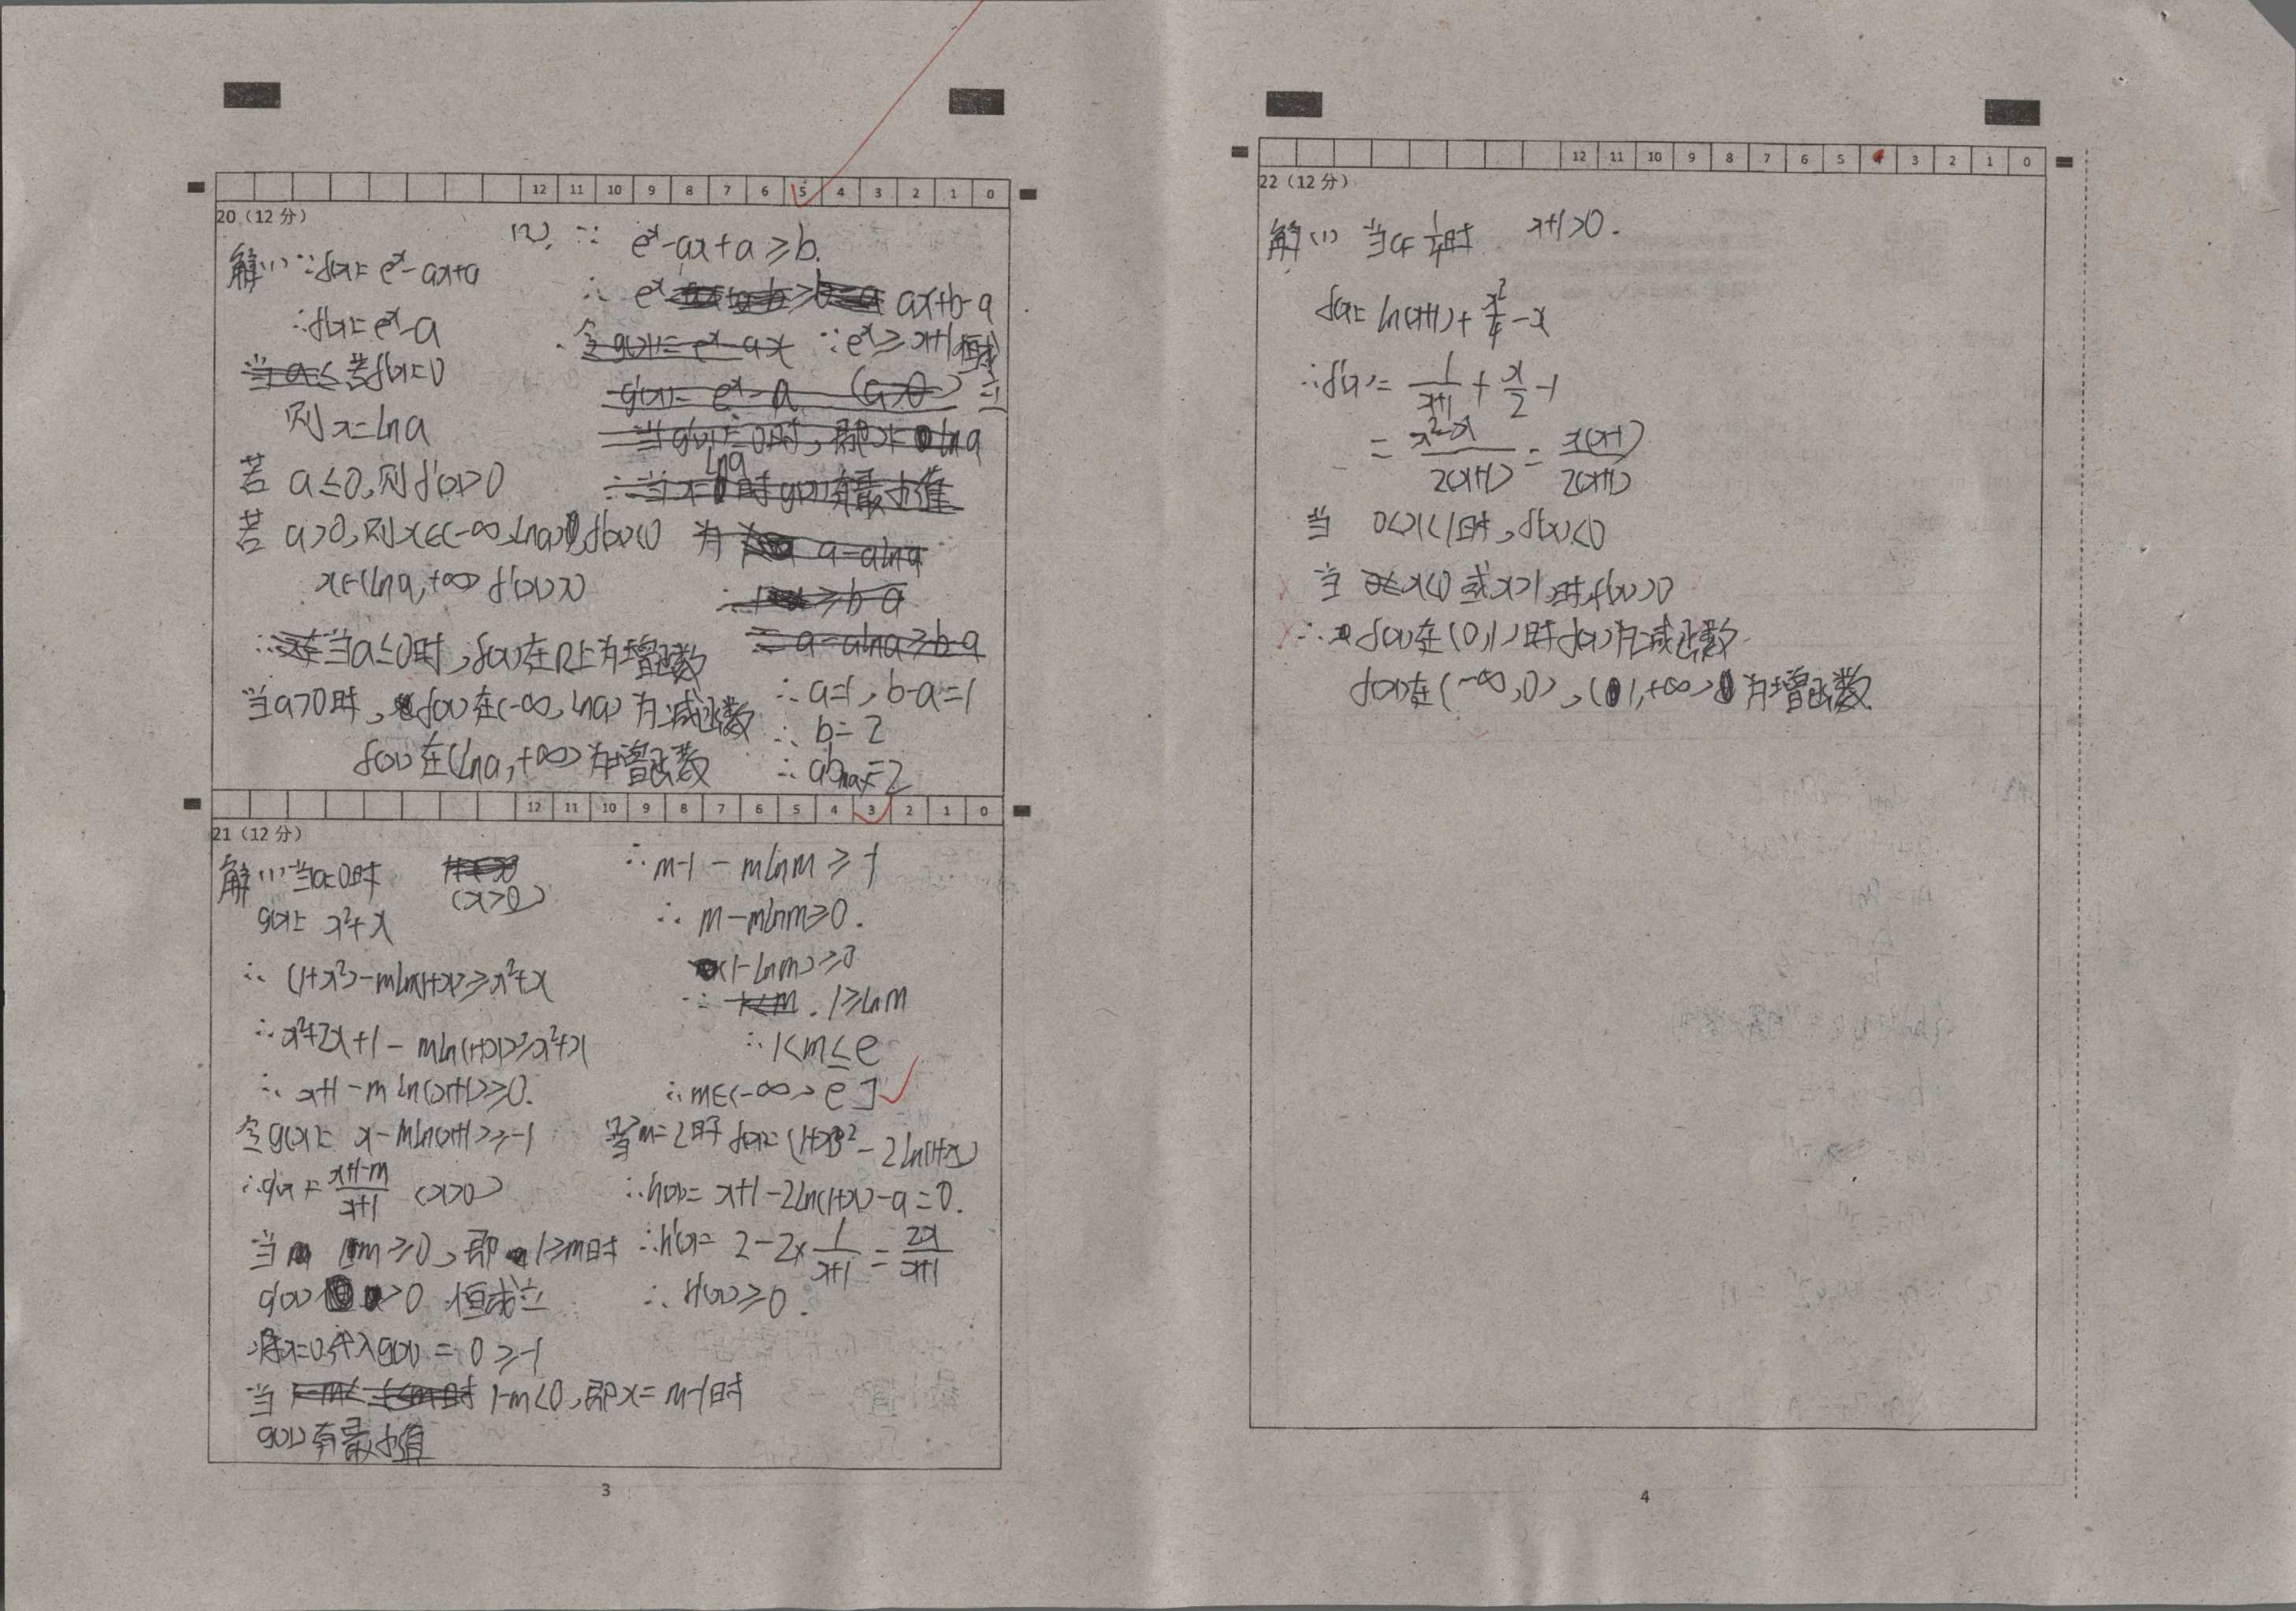 12 11 10 9 8 7 6 5 4 3 2 1 0
20（12 分）
解(1)∵f(x)=e^x-ax+a
∴f'(x)=e^x-a
若f'(x)=0
则x=lna
若 a≤0,则f'(x)>0
若 a>0,则x∈(-∞,lna),f'(x)<0
x∈(lna,+∞) f'(x)>0
∴当a≤0时,f(x)在R上为增函数
当a>0时,f(x)在(-∞,lna)为减函数
f(x)在(lna,+∞)为增函数
(2) ∵ e^x-ax+a≥b.
∴ e^x ≥ ax+b-a
∵e^x≥x+1恒成立
∴a=1,b-a=1
∴b=2
∴ab_max=2
12 11 10 9 8 7 6 5 4 3 2 1 0
21（12 分）
解(1)当a=0时
(x>0)
g(x)=x²+x
∴(1+x²)-mln(1+x)≥x²+x
∴x²+2x+1-mln(1+x)≥x²+x
∴x+1-mln(x+1)≥0.
令g(x)=x-mln(x+1)≥-1
∴g'(x)=\frac{x+1-m}{x+1} (x>0)
当 1-m≥0,即1≥m时
g'(x)>0 恒成立
将x=0代入g(x)=0≥-1
当 1-m<0,即x=m-1时
g(x)有最小值
∴m-1-mlnm≥-1
∴m-mlnm≥0.
(1-lnm)≥0
∴ 1≥lnm
∴1<m≤e
∴m∈(-∞,e]
当m=2时 f(x)=(1+x)²-2ln(1+x)
∴h(x)=x+1-2ln(1+x)-a=0.
∴h'(x)=2-2×\frac{1}{x+1}=\frac{2x}{x+1}
∴h'(x)≥0.
3
12 11 10 9 8 7 6 5 4 3 2 1 0
22（12 分）
解(1) 当a=\frac{1}{4}时 x+1>0.
f(x)=ln(x+1)+\frac{x²}{4}-x
∴f'(x)=\frac{1}{x+1}+\frac{x}{2}-1
=\frac{x²-x}{2(x+1)}=\frac{x(x-1)}{2(x+1)}
当 0<x<1时,f'(x)<0
当 x<0 或x>1时,f'(x)>0
∴f(x)在(0,1)时f(x)为减函数
f(x)在(-∞,0),(1,+∞)为增函数.
4